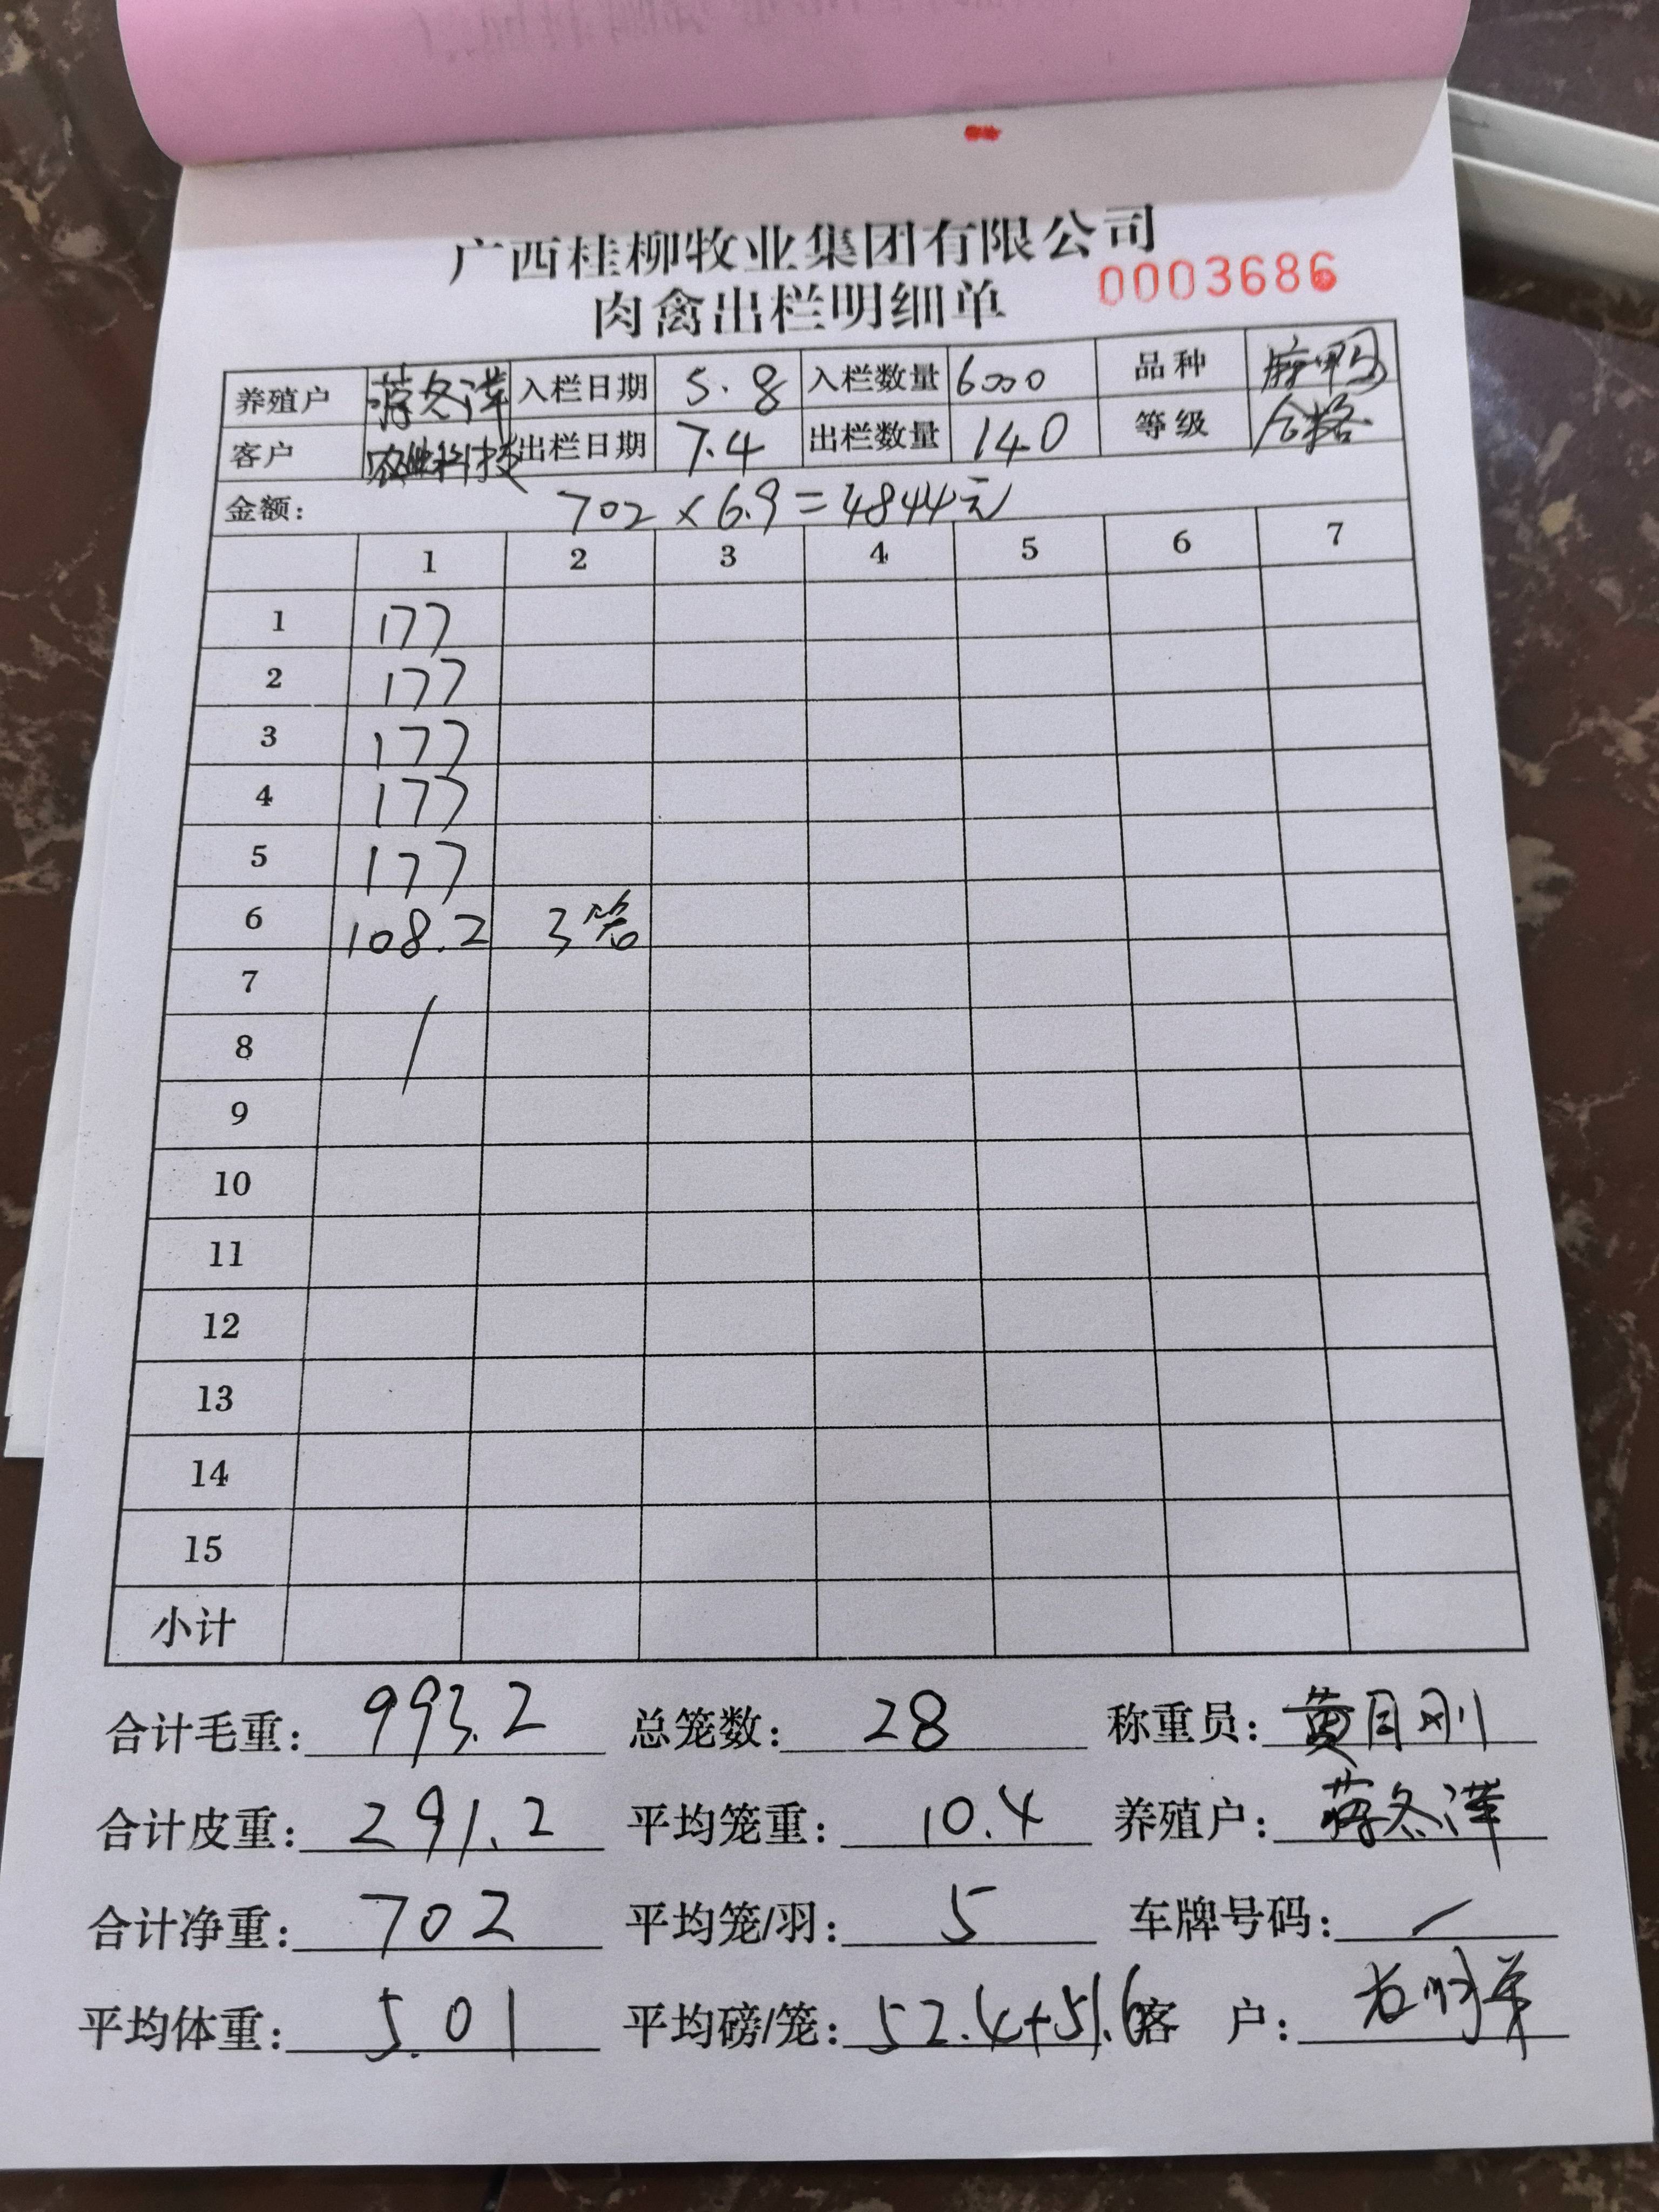 广西桂柳牧业集团有限公司
肉禽出栏明细单 0003686
养殖户 蒋冬洋 入栏日期 5.8 入栏数量 6000 品种 麻鸭
客户 农业科技 出栏日期 7.4 出栏数量 140 等级 合格
金额: 702×6.9=4844元
1 2 3 4 5 6 7
1 177
2 177
3 177
4 177
5 177
6 108.2 3笼
7
8 /
9
10
11
12
13
14
15
小计
合计毛重: 993.2 总笼数: 28 称重员: 黄月刚
合计皮重: 291.2 平均笼重: 10.4 养殖户: 蒋冬洋
合计净重: 702 平均笼/羽: 5 车牌号码: /
平均体重: 5.01 平均磅/笼: 52.4+51.6 客 户: